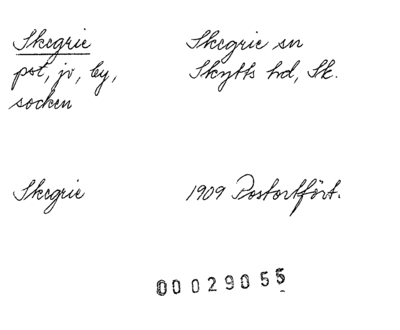 Skegrie Skegrie sn
pst, jv, by, Skytts hd, Sk.
socken
Skegrie 1909 Postortfört.
00029055